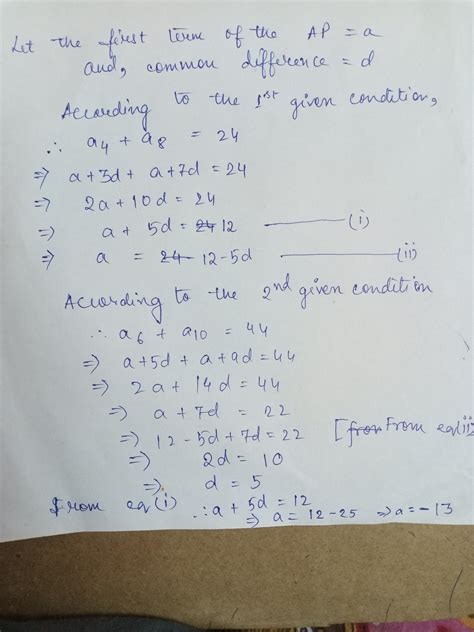 Let the first term of the AP = a
and, common difference = d
According to the 1st given condition,
∴ a₄ + a₈ = 24
⇒ a+3d + a+7d = 24
⇒ 2a + 10d = 24
⇒ a + 5d = 24 12 ——— (i)
⇒ a = 24 - 12-5d ——— (ii)
According to the 2nd given condition
∴ a₆ + a₁₀ = 44
⇒ a+5d + a+9d = 44
⇒ 2a + 14d = 44
⇒ a + 7d = 22
⇒ 12 - 5d + 7d = 22 [from From eq(ii)
⇒ 2d = 10
⇒ d = 5
From eq(i) ∴ a + 5d = 12
⇒ a = 12-25 ⇒ a = -13